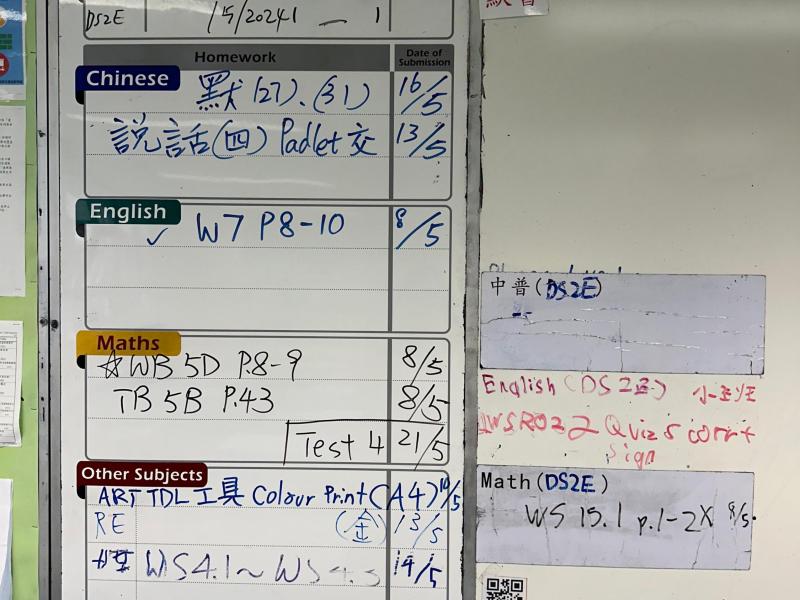 DS2E
Homework
Date of Submission
Chinese
默(27)、(31) 16/5
說話(四) Padlet 交 13/5
English
✓ W7 P8-10 8/5
Maths
☆WB 5D P.8-9 8/5
TB 5B P.43 8/5
Test 4 21/5
Other Subjects
ART TDL 工具 Colour Print (A4) 10/5
RE (金) 13/5
WS4.1~WS4.5 14/5
中普(DS2E)
English (DS2E)
2 Quiz 5 corr+
sign
Math(DS2E)
WS 15.1 p.1-2X 8/5